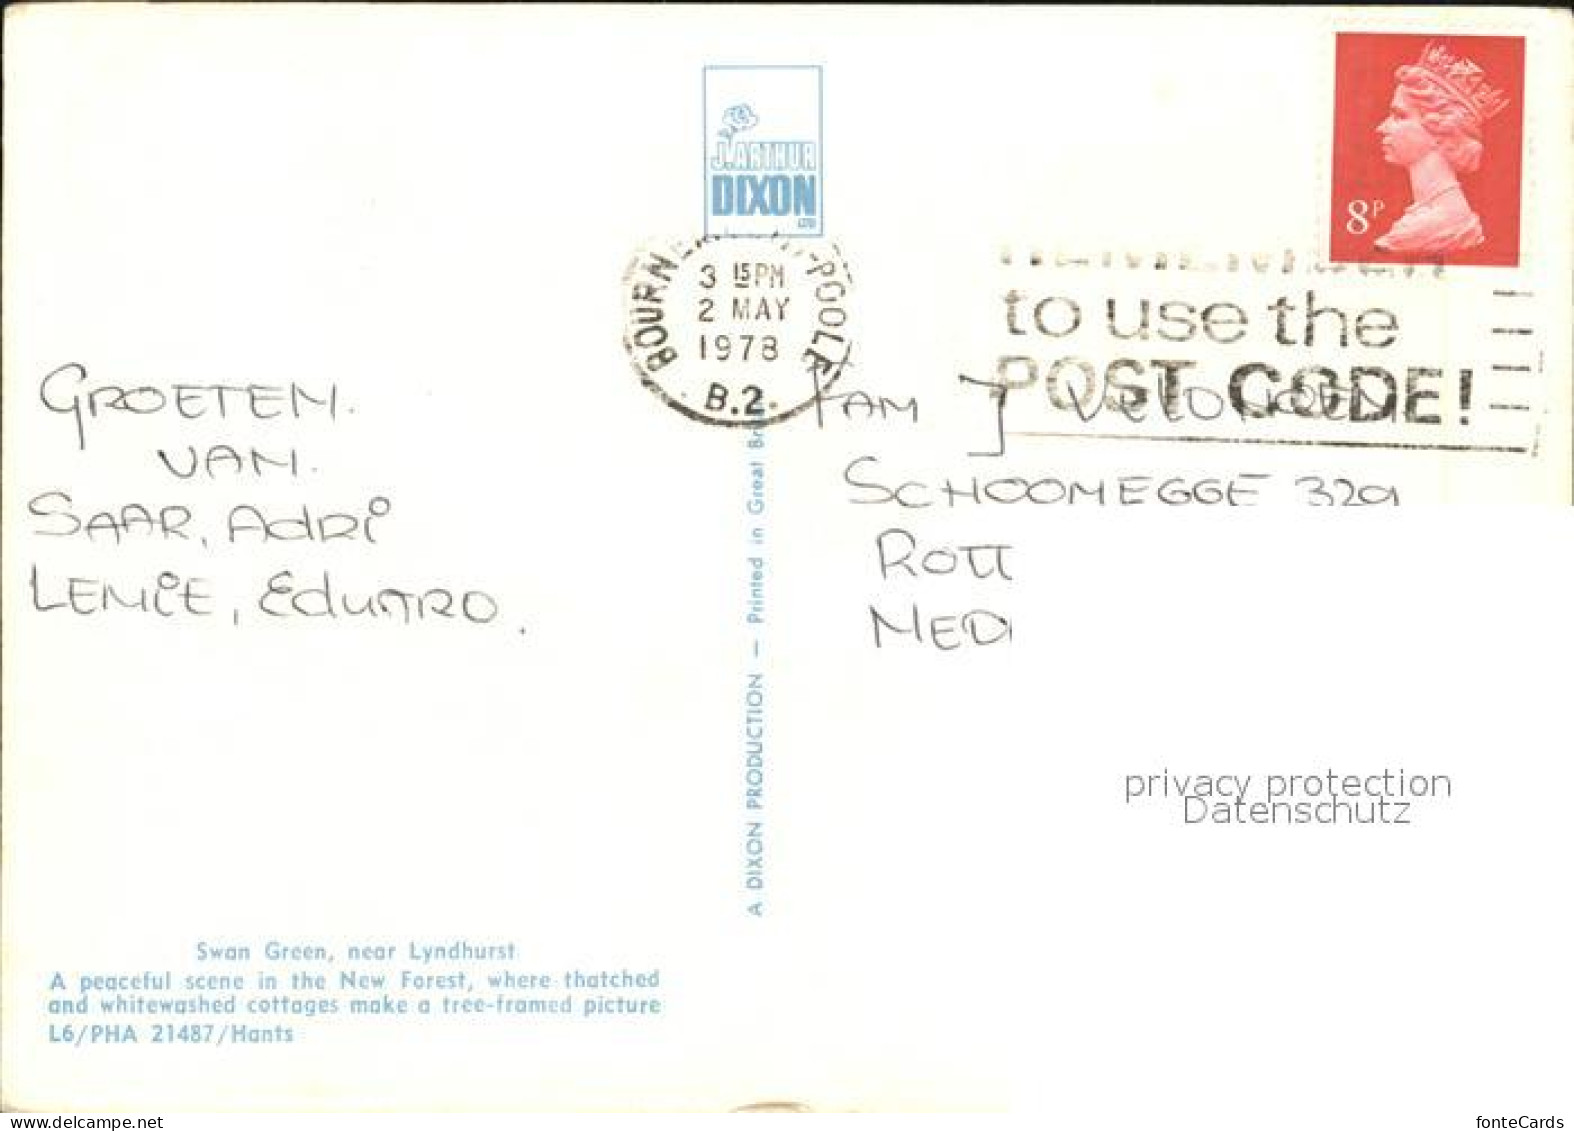 J. ARTHUR
DIXON
LTD
8P
3 15PM
2 MAY
1978
B.2.
to use the
POST CODE!
GROETEN.
VAN.
SAAR, Adri
LENIE, EduARD.
FAM J
SCHOONEGGE 329
ROTT
NED
A DIXON PRODUCTION — Printed in Great
privacy protection
Datenschutz
Swan Green, near Lyndhurst
A peaceful scene in the New Forest, where thatched
and whitewashed cottages make a tree-framed picture
L6/PHA 21487/Hants
www.delcampe.net
fonteCards